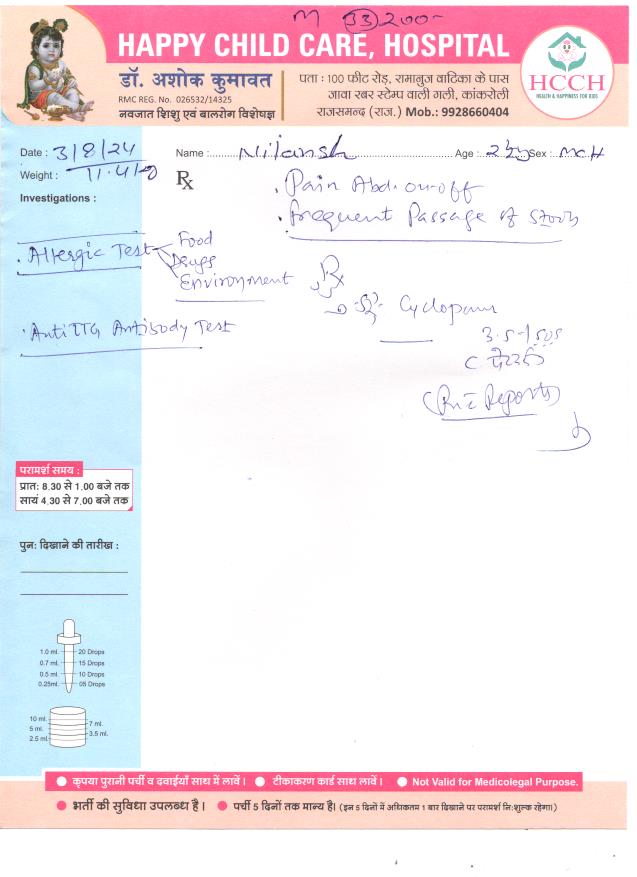 M (33) 200-
HAPPY CHILD CARE, HOSPITAL
डॉ. अशोक कुमावत
RMC REG. No. 026532/14325
नवजात शिशु एवं बालरोग विशेषज्ञ
पता : 100 फीट रोड़, रामानुज वाटिका के पास
जावा रबर स्टेम्प वाली गली, कांकरोली
राजसमन्द (राज.) Mob.: 9928660404
HCCH
HEALTH & HAPPINESS FOR KIDS
Date : 3/8/24 Name : Nilansh Age : Sex : MCH
Weight :
Rx
Investigations :
. Pain Abd. on-off
. frequent Passage of Stools
. Allergic Test
Food
Drugs
Environment
Rx
Cyclopam
. Anti TTG Antibody Test
3.5 ml SOS
Reports
परामर्श समय :
प्रात: 8.30 से 1.00 बजे तक
सायं 4.30 से 7.00 बजे तक
पुन: दिखाने की तारीख :
1.0 ml. 20 Drops
0.7 ml. 15 Drops
0.5 ml. 10 Drops
0.25ml. 05 Drops
10 ml.
7 ml.
5 ml.
3.5 ml.
2.5 ml.
कृपया पुरानी पर्ची व दवाईयाँ साथ में लावें। टीकाकरण कार्ड साथ लावें। Not Valid for Medicolegal Purpose.
भर्ती की सुविधा उपलब्ध है। पर्ची 5 दिनों तक मान्य है। (इन 5 दिनों में अधिकतम 1 बार दिखाने पर परामर्श नि:शुल्क रहेगा।)